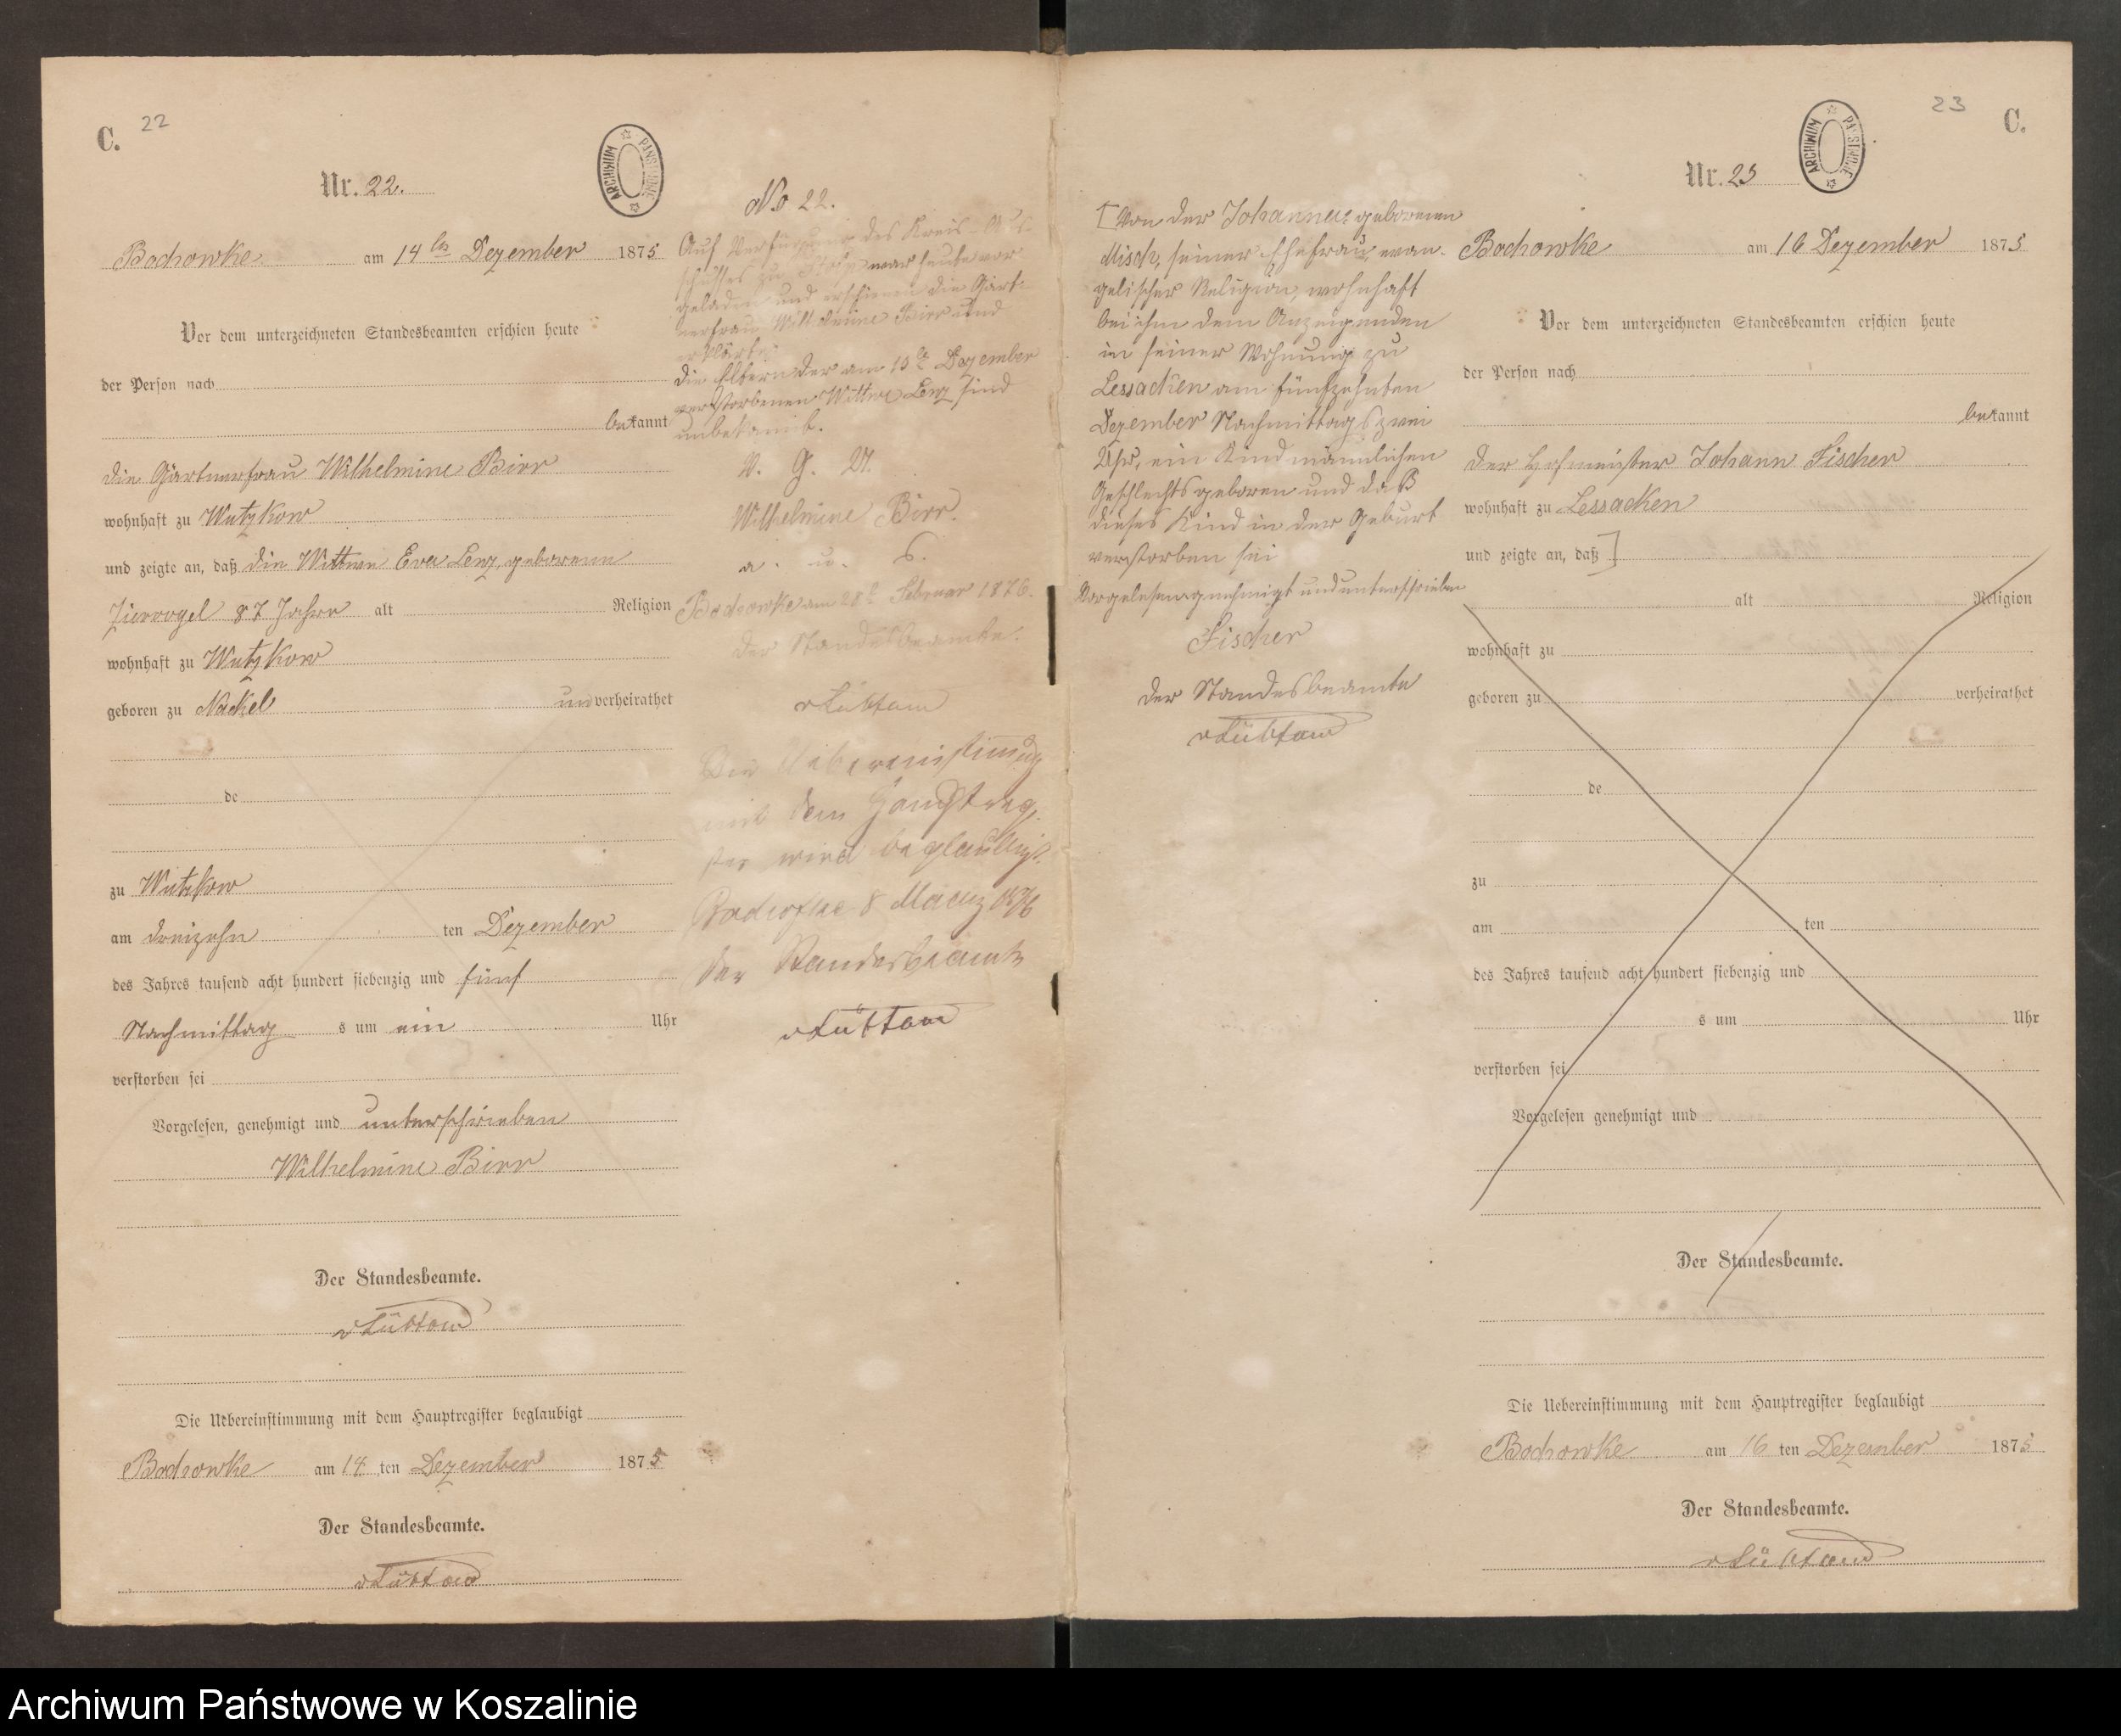 C. 22
Nr. 22.
ARCHIWUM PAŃSTWOWE
Bochowke am 14ten Dezember 1875
Vor dem unterzeichneten Standesbeamten erschien heute
der Person nach
bekannt
die Gärtnerfrau Wilhelmine Birr
wohnhaft zu Wutzkow
und zeigte an, daß die Wittwe Eva Lenz, geborene
Ziervogel 87 Jahre alt Religion
wohnhaft zu Wutzkow
geboren zu Nackel verheirathet
de
zu Wutzkow
am dreizehn ten Dezember
des Jahres tausend acht hundert siebenzig und fünf
Nachmittag s um ein Uhr
verstorben sei
Vorgelesen, genehmigt und unterschrieben
Wilhelmine Birr
Der Standesbeamte.
vLüttow
Die Uebereinstimmung mit dem Hauptregister beglaubigt
Bochowke am 14 ten Dezember 1875
Der Standesbeamte.
vLüttow
No 22.
Auf Verfügung des Kreis-Aus-
schusses zu Stolp war heute vor
geladen und erschienen die Gärt-
nerfrau Wilhelmine Birr und
erklärt:
die Eltern der am 13ten Dezember
verstorbenen Wittwe Lenz sind
unbekannt.
V. G. U.
Wilhelmine Birr.
a. u. s.
Bochowke am 28t Februar 1876.
Der Standesbeamte.
vLüttow
Die Uebereinstimmung
mit dem Hauptregi-
ster wird beglaubigt.
Bochowke 8 Maerz 1876
Der Standesbeamte
vLüttow
23 C.
Nr. 23
ARCHIWUM PAŃSTWOWE
Bochowke am 16 Dezember 1875
Vor dem unterzeichneten Standesbeamten erschien heute
der Person nach
bekannt
der Hofmeister Johann Fischer
wohnhaft zu Lessacken
und zeigte an, daß ]
alt Religion
wohnhaft zu
geboren zu verheirathet
de
zu
am ten
des Jahres tausend acht hundert siebenzig und
s um Uhr
verstorben sei
Vorgelesen genehmigt und
Der Standesbeamte.
Die Uebereinstimmung mit dem Hauptregister beglaubigt
Bochowke am 16 ten Dezember 1875
Der Standesbeamte.
vLüttow
[ Von der Johanne geborenen
Misch, seiner Ehefrau, evan-
gelischer Religion, wohnhaft
bei ihm dem Anzeigenden
in seiner Wohnung zu
Lessacken am fünfzehnten
Dezember Nachmittags zwei
Uhr, ein Kind männlichen
Geschlechts geboren und daß
dieses Kind in der Geburt
verstorben sei
Vorgelesen genehmigt und unterschrieben
Fischer
Der Standesbeamte
vLüttow
Archiwum Państwowe w Koszalinie